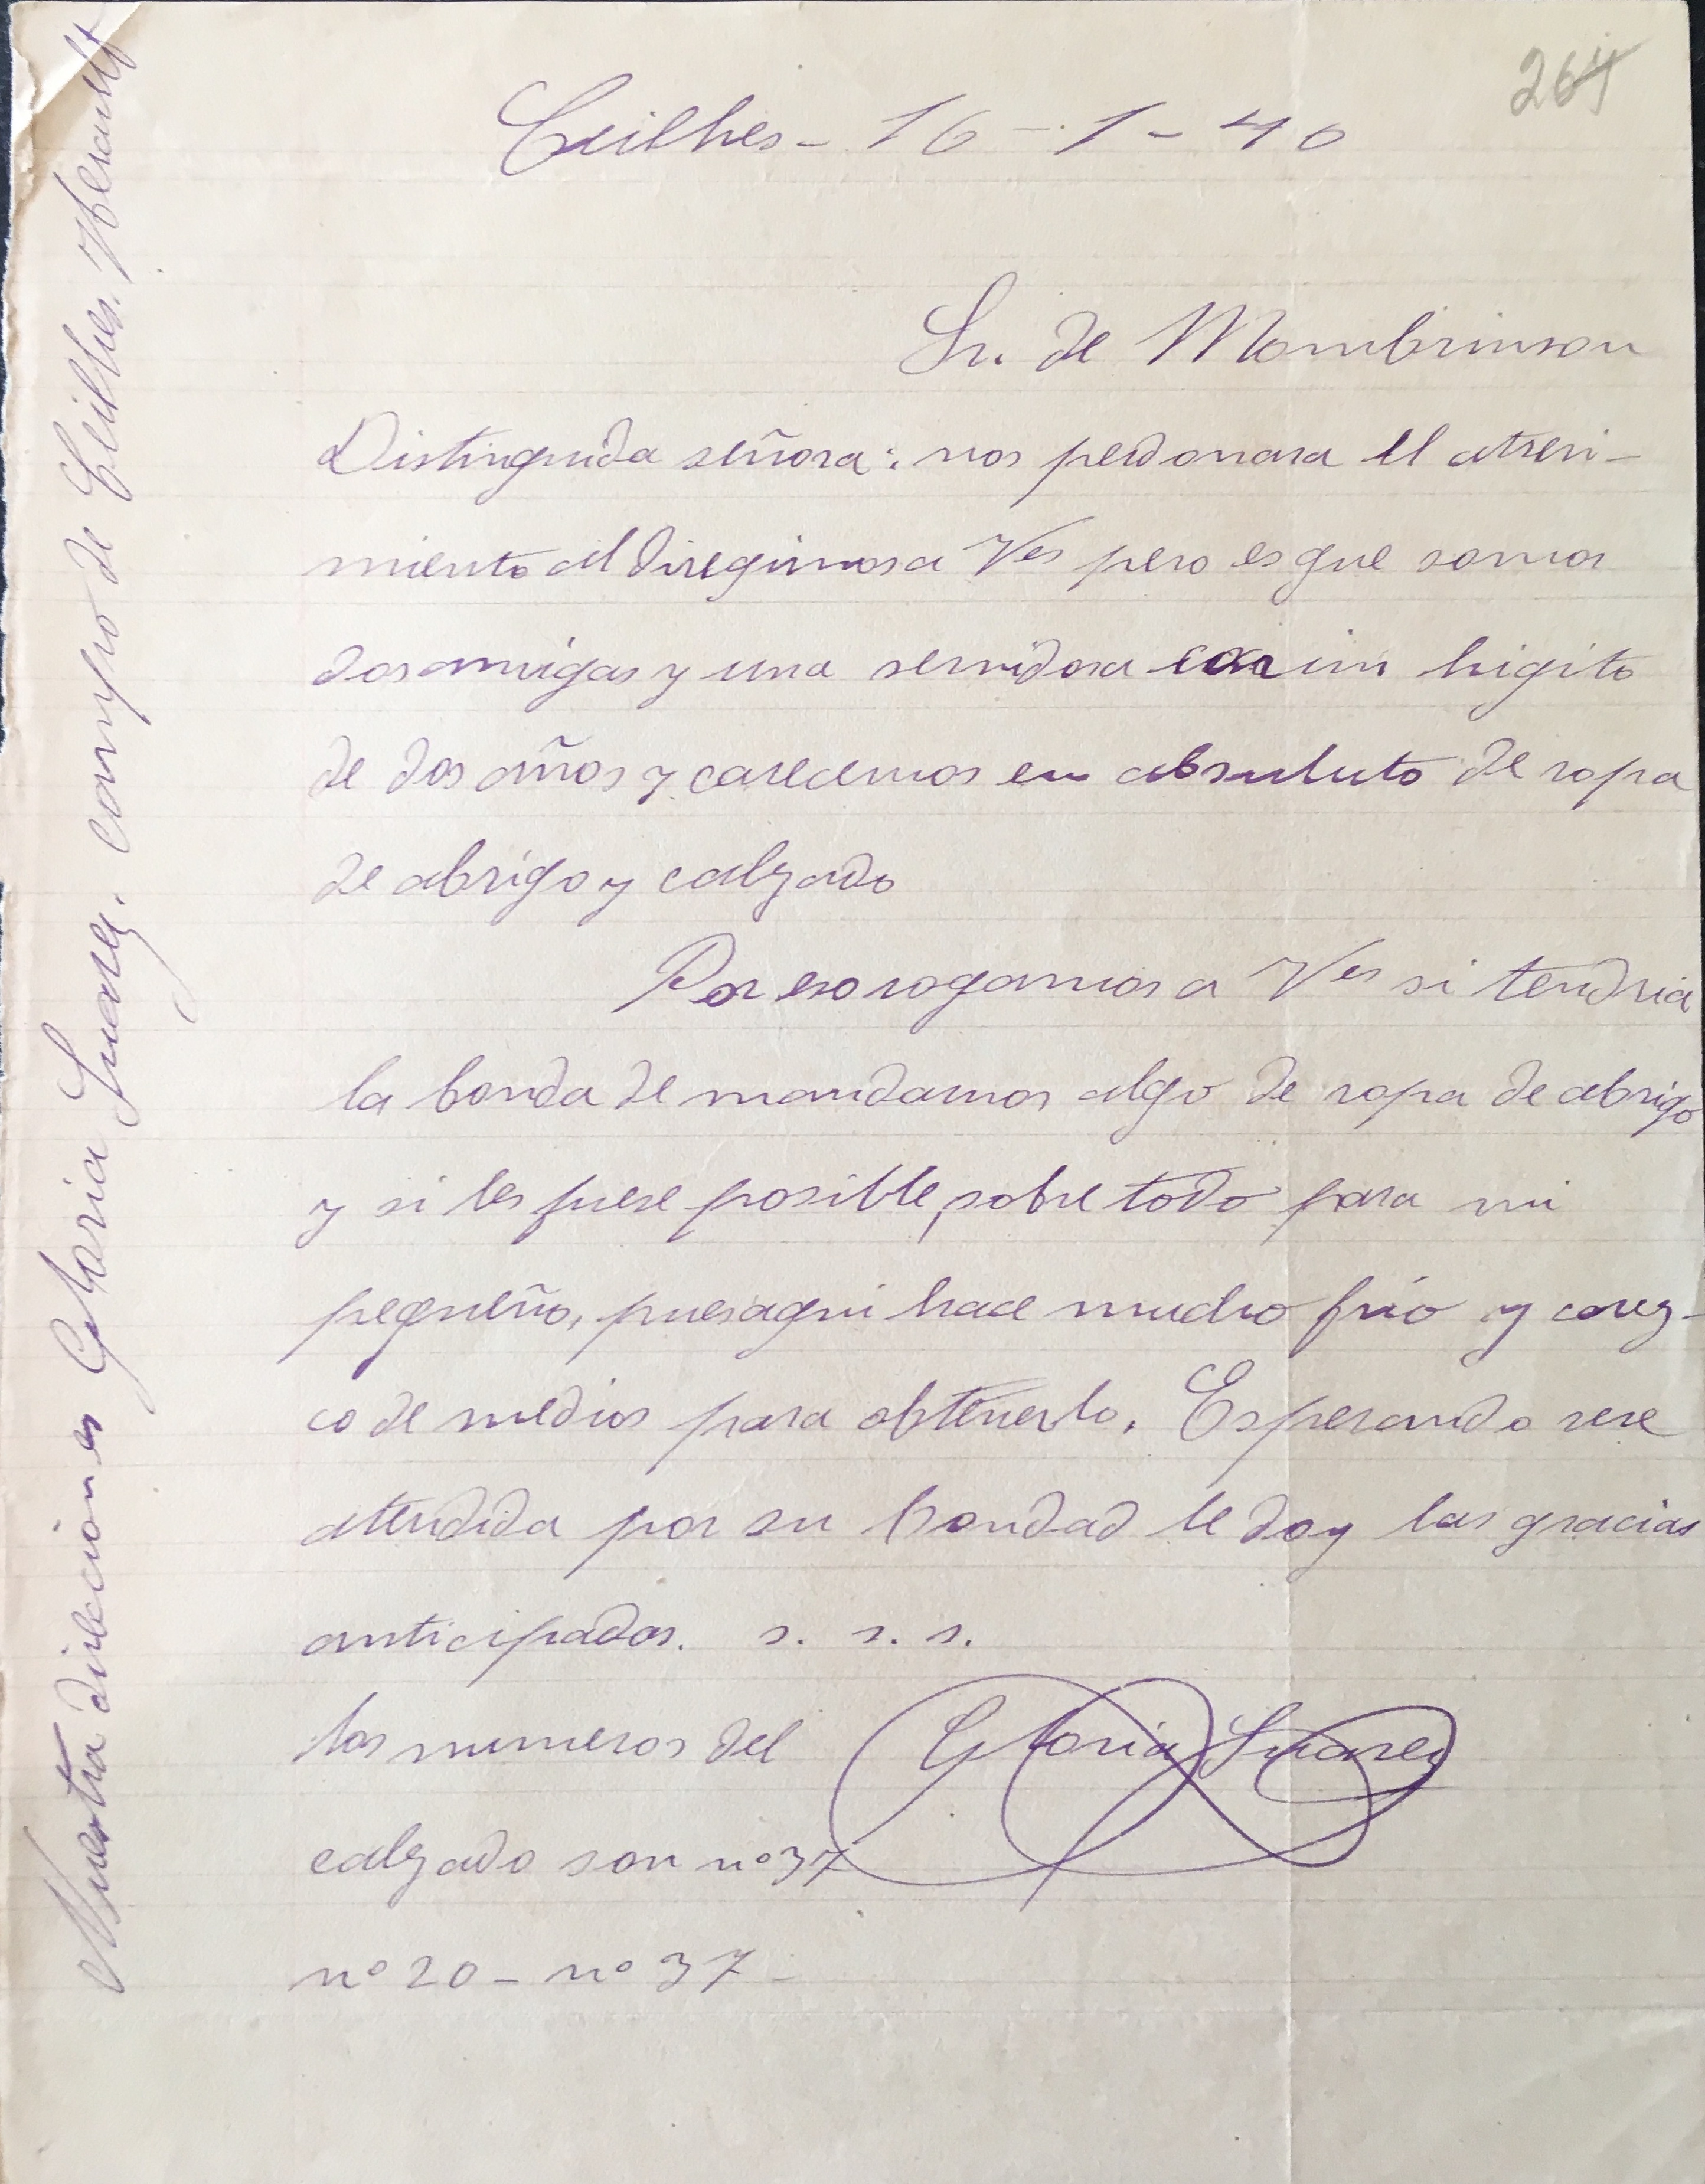 264
Ceilhes - 16 - 1 - 40
Sr. de Mombrinson
Distinguida señora: nos perdonara el atrevi-
miento al diregirnos a Ves pero es que somos
dos amigas y una servidora con un higito
de dos años y carecemos en absuluto de ropa
de abrigo y calzado
Por eso rogamos a Ves si tendria
la bonda de mandarnos algo de ropa de abrigo
y si les fuese posible, sobre todo para mi
pequeño, pues aqui hace mucho frio y carez-
co de medios para obtenerlo. Esperando sere
atendida por su bondad le doy las gracias
anticipadas. s. s. s.
los numeros del Gloria Suarez
calzado son nº 37
nº 20 - nº 37 -
Nuestra direccion es Gloria Suarez. campo de Ceilhes. Herault